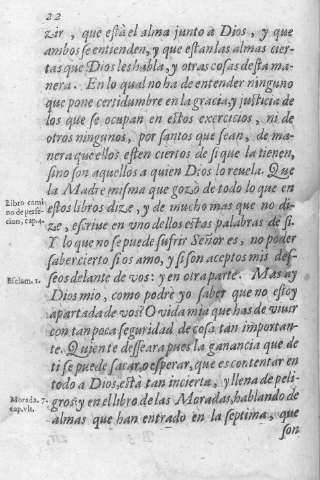 22
zir, que està el alma junto a Dios, y que
ambos se entienden, y que estan las almas cier-
tas que Dios les habla, y otras cosas desta ma-
nera. En lo qual no ha de entender ninguno
que pone certidumbre en la gracia, y justicia de
los que se ocupan en estos exercicios, ni de
otros ningunos, por santos que sean, de ma-
nera que ellos esten ciertos de si que la tienen,
sino son aquellos a quien Dios lo reuela. Que
la Madre misma que gozò de todo lo que en
Libro cami
no de perfe-
cion, cap. 4.
estos libros dize, y de mucho mas que no di-
ze, escriue en vno dellos estas palabras de si.
Y lo que no se puede sufrir Señor es, no poder
saber cierto si os amo, y si son aceptos mis des-
Esclam. 1.
seos delante de vos: y en otra parte. Mas ay
Dios mio, como podre yo saber que no estoy
apartada de vos? O vida mia que has de viuir
con tan poca seguridad de cosa tan importan-
te. Quien te desseara pues la ganancia que de
ti se puede sacar, o esperar, que es contentar en
todo a Dios, està tan incierta, y llena de peli-
Morada. 7.
cap. vlt.
gros: y en el libro de las Moradas, hablando de
almas que han entrado en la septima, que
son